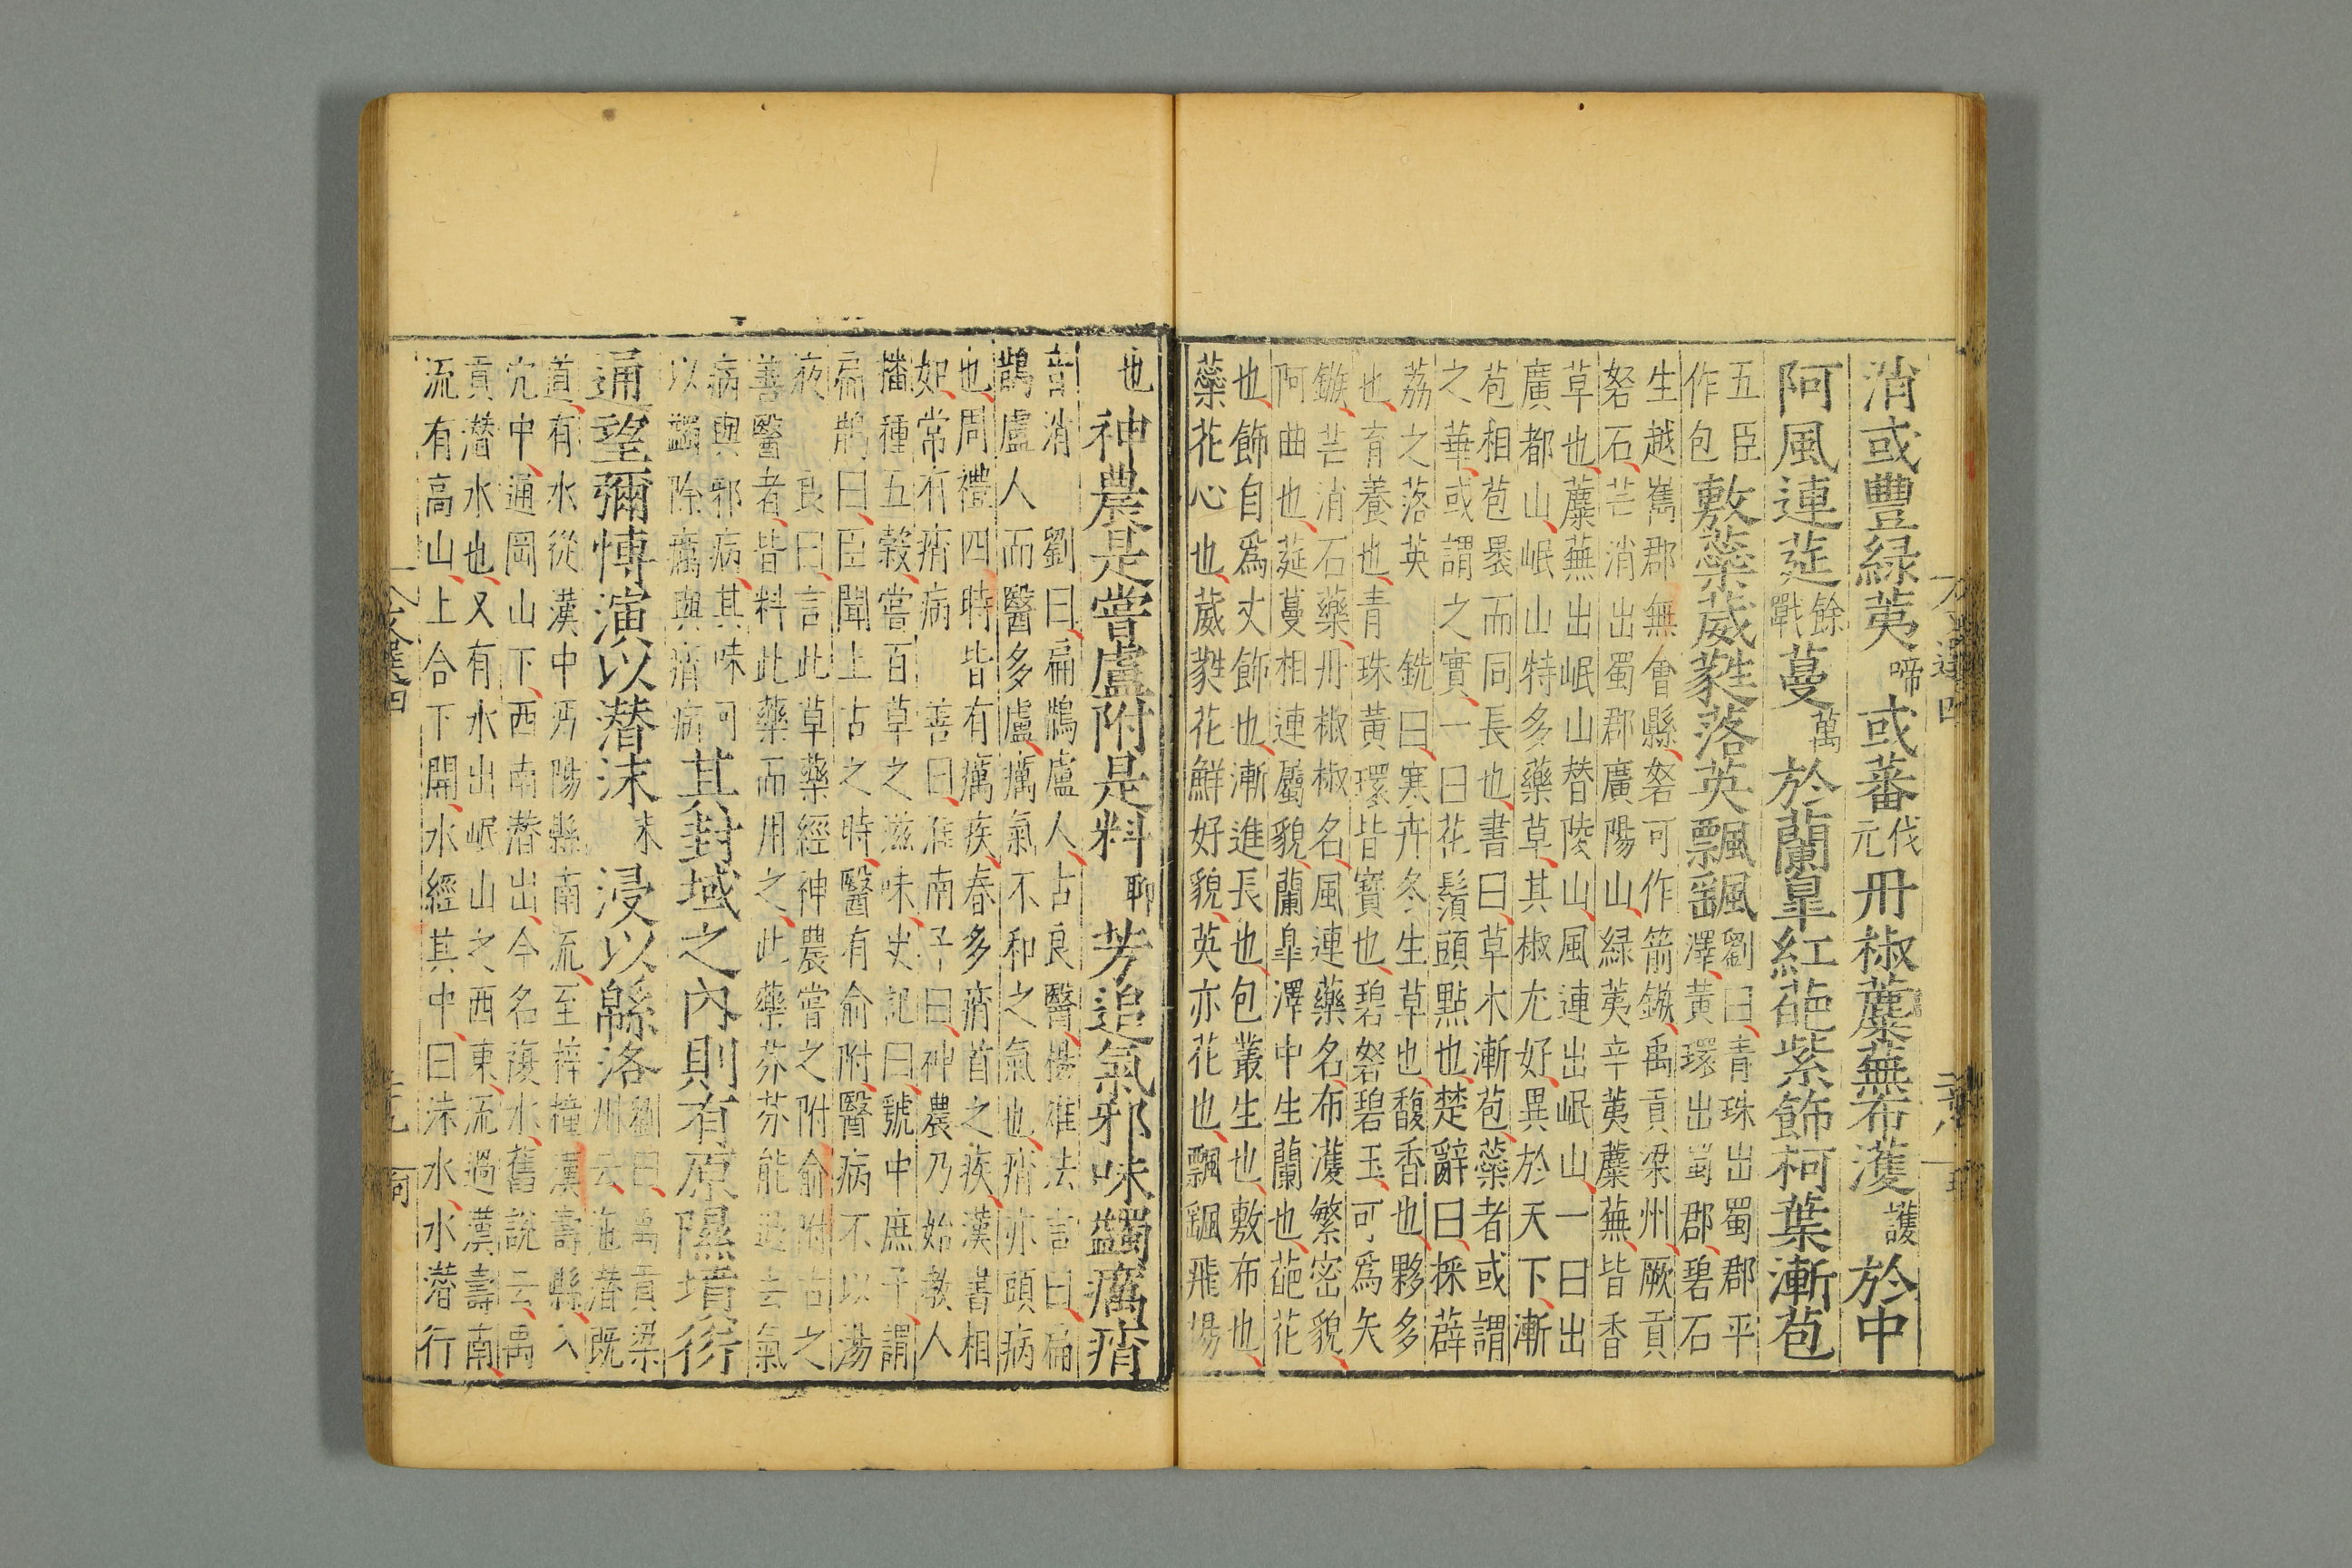 消或豐緑荑啼或蕃伐元丹椒蘪蕪布濩護於中
阿風連莚餘戰蔓萬於蘭皐紅葩紫飾柯葉漸苞
五臣
作包
敷蘂葳蕤落英飄颻
劉曰青珠出蜀郡平
澤黄環出蜀郡碧石
生越嶲郡無會縣砮可作箭鏃禹貢梁州厥貢
砮石芒消出蜀郡廣陽山緑荑辛荑蘪蕪皆香
草也蘪蕪出岷山替陵山風連出岷山一曰出
廣都山岷山特多藥草其椒尤好異於天下漸
苞相苞裹而同長也書曰草木漸苞蘂者或謂
之華或謂之實一曰花鬚頭點也楚辭曰採薜
荔之落英 銑曰寒卉冬生草也馥香也夥多
也育養也青珠黄環皆寶也碧砮碧玉可爲矢
鏃芒消石藥丹椒椒名風連藥名布濩繁密貌
阿曲也莚蔓相連屬貌蘭皐澤中生蘭也葩花
也飾自爲丈飾也漸進長也包叢生也敷布也
蘂花心也葳蕤花鮮好貌英亦花也飄颻飛揚
也神農是嘗盧附是料聊芳追氣邪味蠲癘痟
音消 劉曰扁鵲盧人古良醫楊雄法言曰扁
鵲盧人而醫多盧癘氣不和之氣也痟亦頭病
也周禮四時皆有癘疾春多痟首之疾漢書相
如常有痟病 善曰淮南子曰神農乃始教人
播種五穀嘗百草之滋味史記曰虢中庶子謂
扁鵲曰臣聞上古之時醫有俞附醫病不以湯
液 良曰言此草藥經神農嘗之附俞附古之
善醫者皆料此藥而用之此藥芬芬能追去氣
病與邪病其味可
以蠲除癘與痟病
其封域之內則有原隰墳衍
通望彌博演以潛沬末浸以緜洛
劉曰禹貢梁
州云沲潛既
道有水從漢中沔陽縣南流至梓橦漢壽縣入
穴中通岡山下西南潛出今名複水舊說云禹
貢潛水也又有水出岷山之西東流過漢壽南
流有高山上合下開水經其中曰沬水水潛行